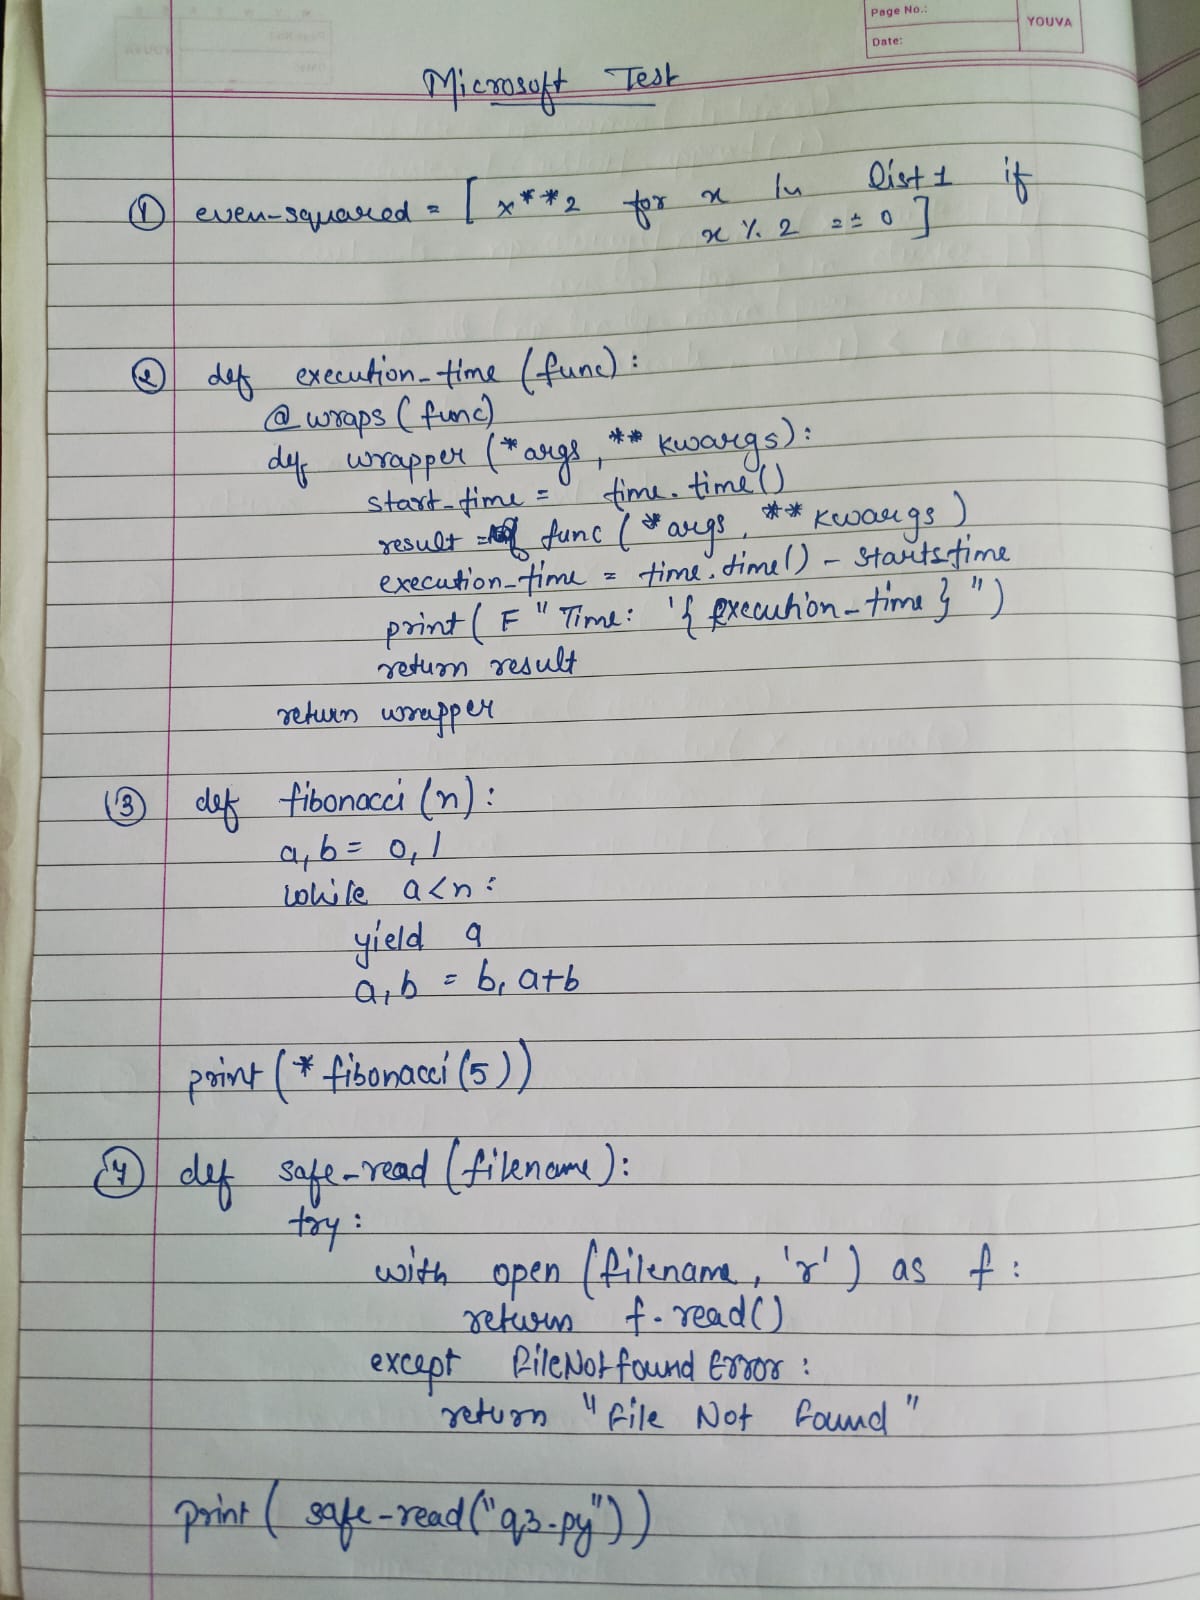 Page No.:
Date:
YOUVA
Microsoft Test
① even-squared = [ x**2 for x in list1 if
x % 2 == 0 ]
② def execution_time (func):
@wraps (func)
def wrapper (*args, **kwargs):
start_time = time.time()
result = func (*args, **kwargs)
execution_time = time.time() - startstime
print( F " Time: '{ execution_time } ")
return result
return wrapper
③ def fibonacci (n):
a, b = 0, 1
while a<n:
yield a
a, b = b, a+b
print (* fibonacci (5))
④ def safe-read (filename):
try:
with open (filename, 'r') as f:
return f.read()
except FileNotfound Error:
return "File Not Found"
print ( safe-read ("q3.py"))